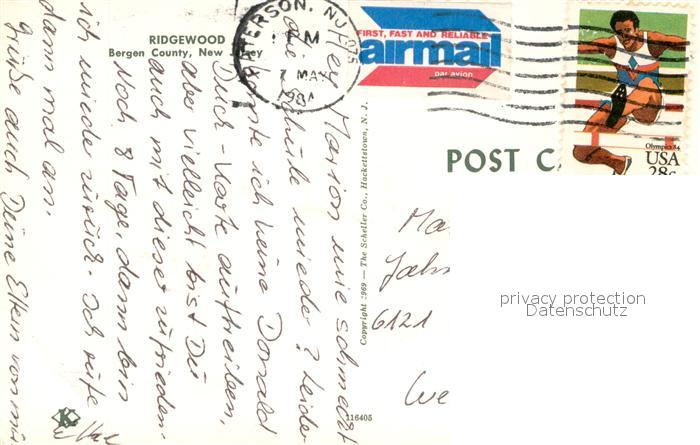 RIDGEWOOD
Bergen County, New Jersey
PATERSON, NJ 075
PM
7 MAY
FIRST, FAST AND RELIABLE
airmail
par avion
Olympics 84
USA
28c
POST CA
Hey Marion wie schmeckt
die Schule wieder? Leider
konnte ich keine Donald
Duck-Karte auftreiben,
aber vielleicht bist Du
auch mit dieser zufrieden.
Noch 8 Tage, dann bin
ich wieder zurück. Ich rufe
dann mal an.
Grüße auch Deine Eltern von mir
Copyright 1969 — The Scheller Co., Hackettstown, N. J.
116405
K
Ma
Jahn
6121
We
privacy protection
Datenschutz